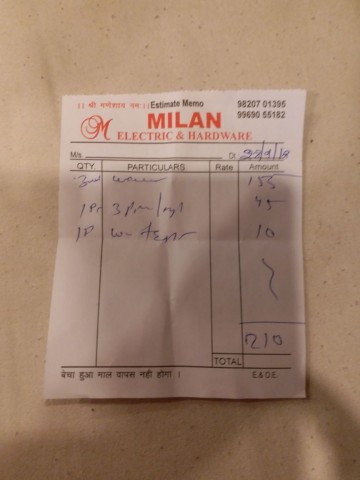 ।। श्री गणेशाय नमः ।। Estimate Memo 98207 01395
99690 55182
MILAN
ELECTRIC & HARDWARE
M/s
QTY. PARTICULARS Rate Amount
155
1Pc 3 pin 45
1P 10
210
TOTAL
बेचा हुआ माल वापस नही होगा । E.& O.E.